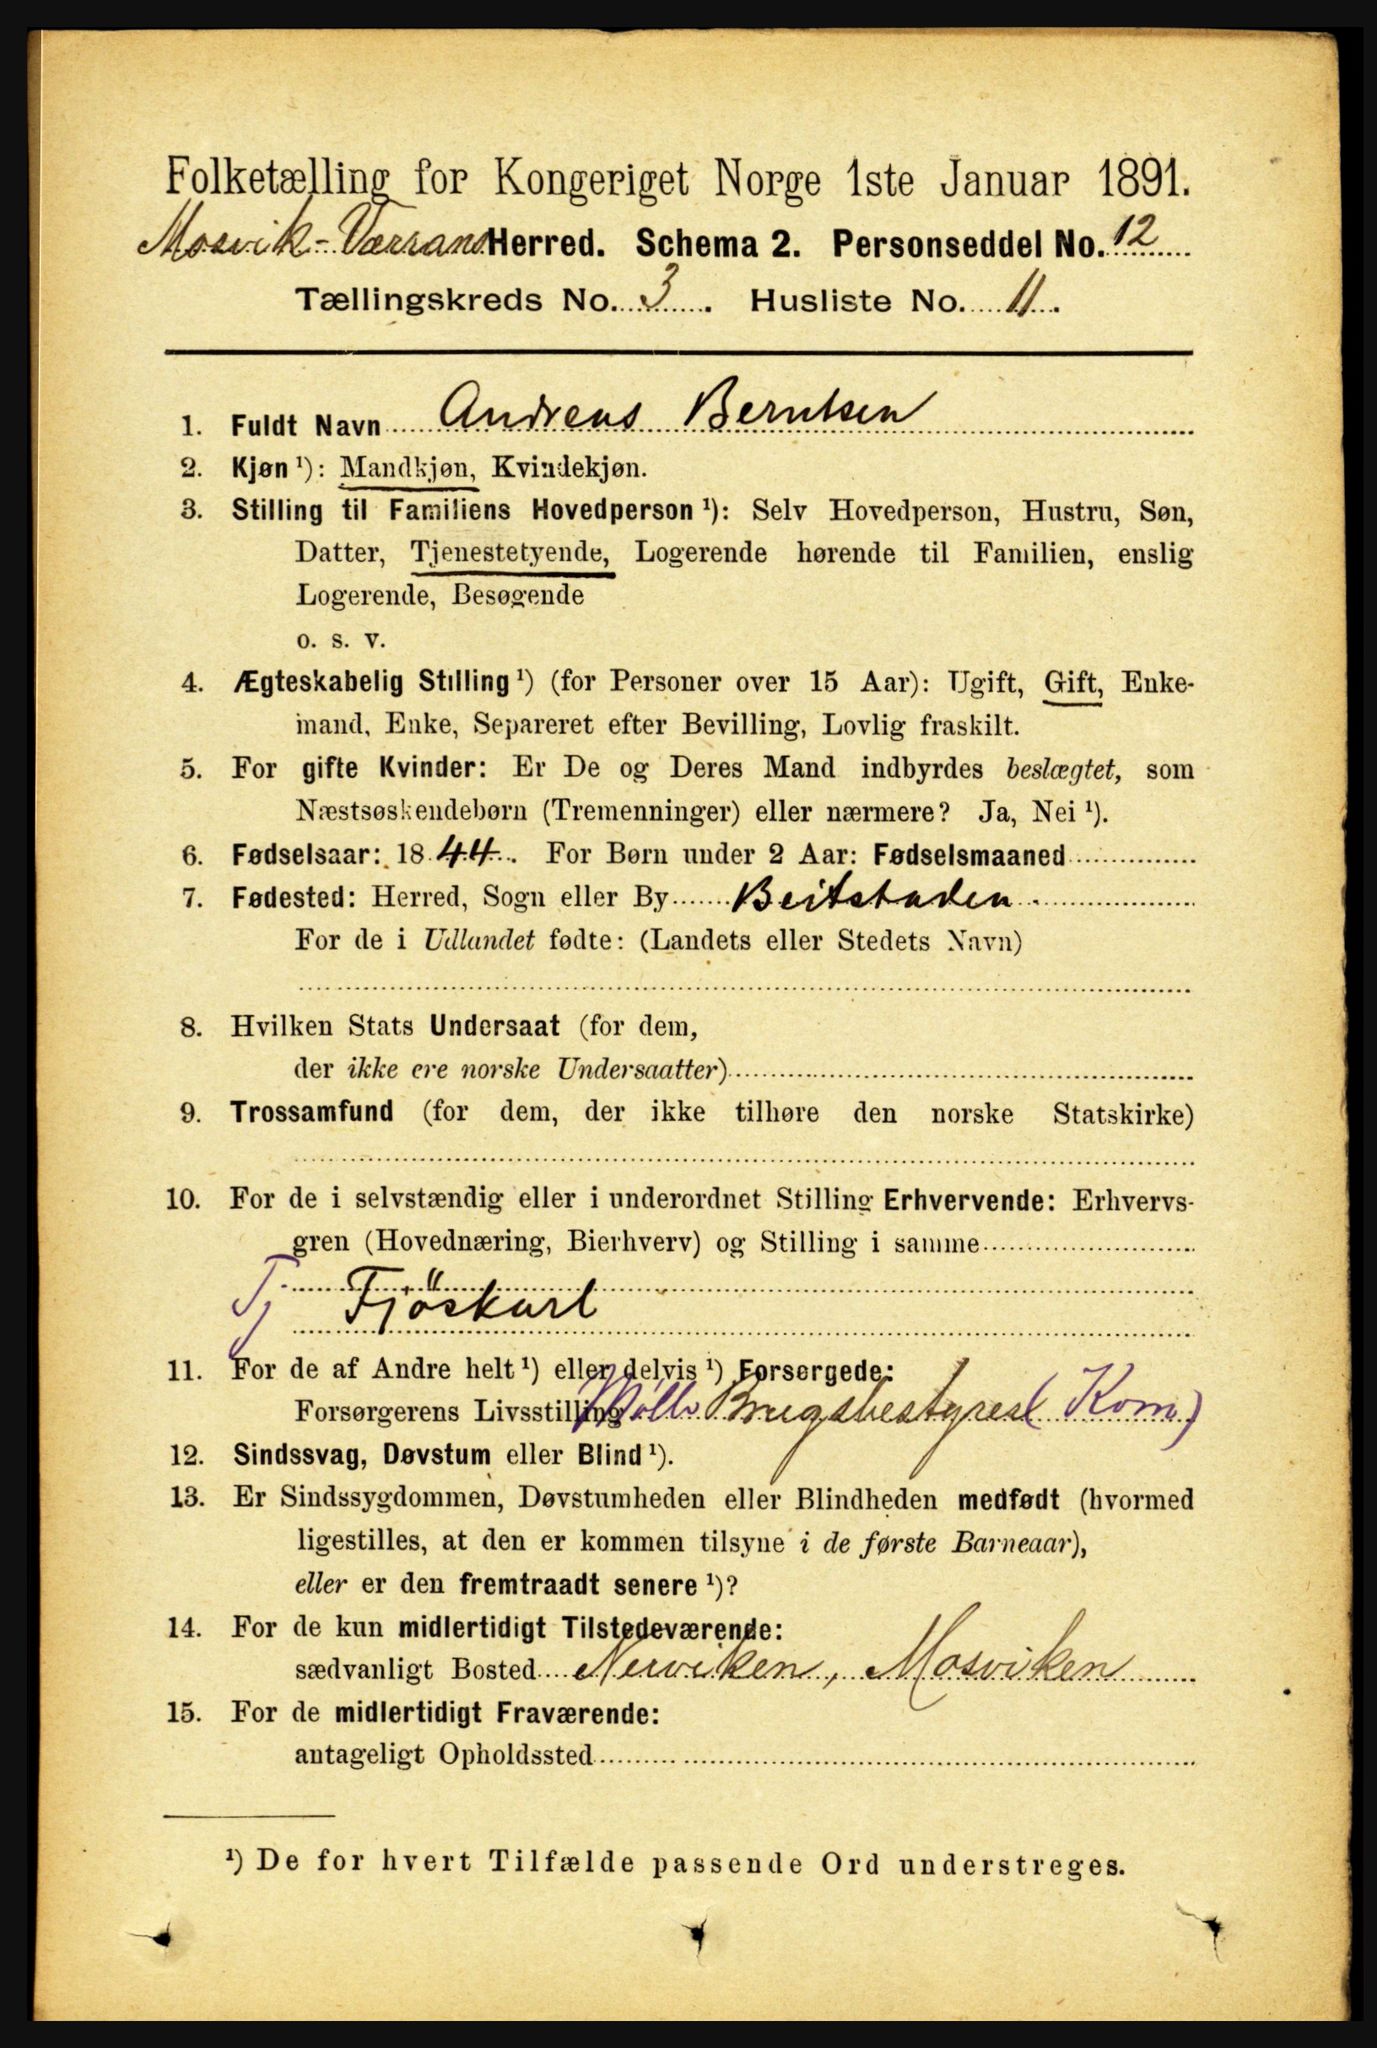 Folketælling for Kongeriget Norge 1ste Januar 1891.
Mosvik-Værrans Herred. Schema 2. Personseddel No. 12
Tællingskreds No. 3. Husliste No. 11.
1. Fuldt Navn Andreas Berntsen
2. Kjøn ¹): Mandkjøn, Kvindekjøn.
3. Stilling til Familiens Hovedperson ¹): Selv Hovedperson, Hustru, Søn,
Datter, Tjenestetyende, Logerende hørende til Familien, enslig
Logerende, Besøgende
o. s. v.
4. Ægteskabelig Stilling ¹) (for Personer over 15 Aar): Ugift, Gift, Enke-
mand, Enke, Separeret efter Bevilling, Lovlig fraskilt.
5. For gifte Kvinder: Er De og Deres Mand indbyrdes beslægtet, som
Næstsøskendebørn (Tremenninger) eller nærmere? Ja, Nei ¹).
6. Fødselsaar: 1844. For Børn under 2 Aar: Fødselsmaaned
7. Fødested: Herred, Sogn eller By Beitstaden.
For de i Udlandet fødte: (Landets eller Stedets Navn)
8. Hvilken Stats Undersaat (for dem,
der ikke ere norske Undersaatter)
9. Trossamfund (for dem, der ikke tilhøre den norske Statskirke)
10. For de i selvstændig eller i underordnet Stilling Erhvervende: Erhvervs-
gren (Hovednæring, Bierhverv) og Stilling i samme
Tj Fjöskarl
11. For de af Andre helt ¹) eller delvis ¹) Forsørgede:
Forsørgerens Livsstilling Brugsbestyrer (Kom.)
12. Sindssvag, Døvstum eller Blind ¹).
13. Er Sindssygdommen, Døvstumheden eller Blindheden medfødt (hvormed
ligestilles, at den er kommen tilsyne i de første Barneaar),
eller er den fremtraadt senere ¹)?
14. For de kun midlertidigt Tilstedeværende:
sædvanligt Bosted Nerviken, Mosviken
15. For de midlertidigt Fraværende:
antageligt Opholdssted
¹) De for hvert Tilfælde passende Ord understreges.